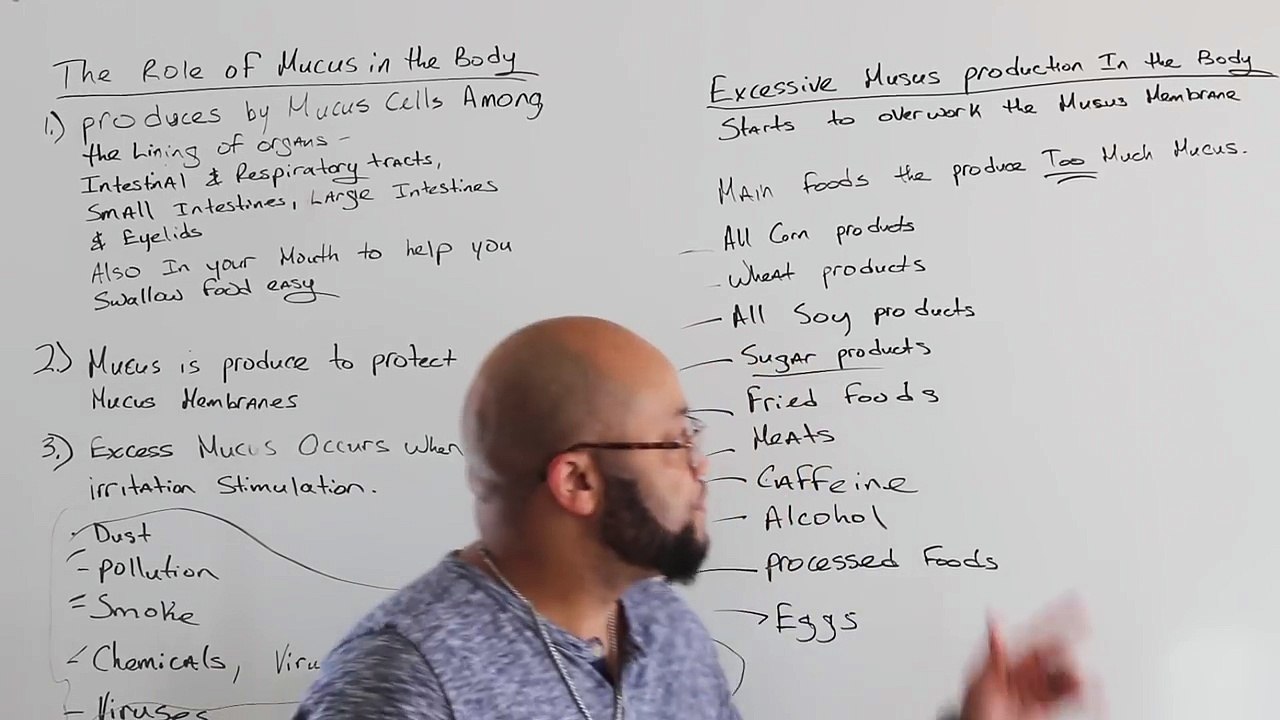 The Role of Mucus in the Body
1.) produces by Mucus Cells Among
the Lining of organs -
Intestinal & Respiratory tracts,
Small Intestines, Large Intestines
& Eyelids
Also In your Mouth to help you
Swallow food easy
2.) Mucus is produce to protect
Mucus Membranes
3.) Excess Mucus Occurs When
irritation Stimulation.
- Dust
- pollution
= Smoke
- Chemicals,
- Viruses
Excessive Musus production In the Body
Starts to overwork the Musus Membrane
Main foods the produce Too Much Mucus.
- All Corn products
- Wheat products
- All Soy products
- Sugar products
- Fried foods
- Meats
- Caffeine
- Alcohol
- processed foods
- Eggs